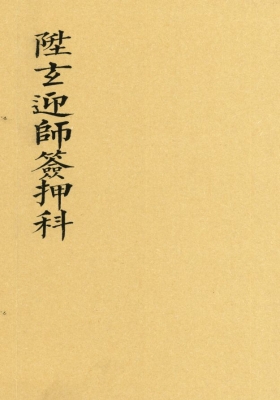 陞玄迎師簽押科